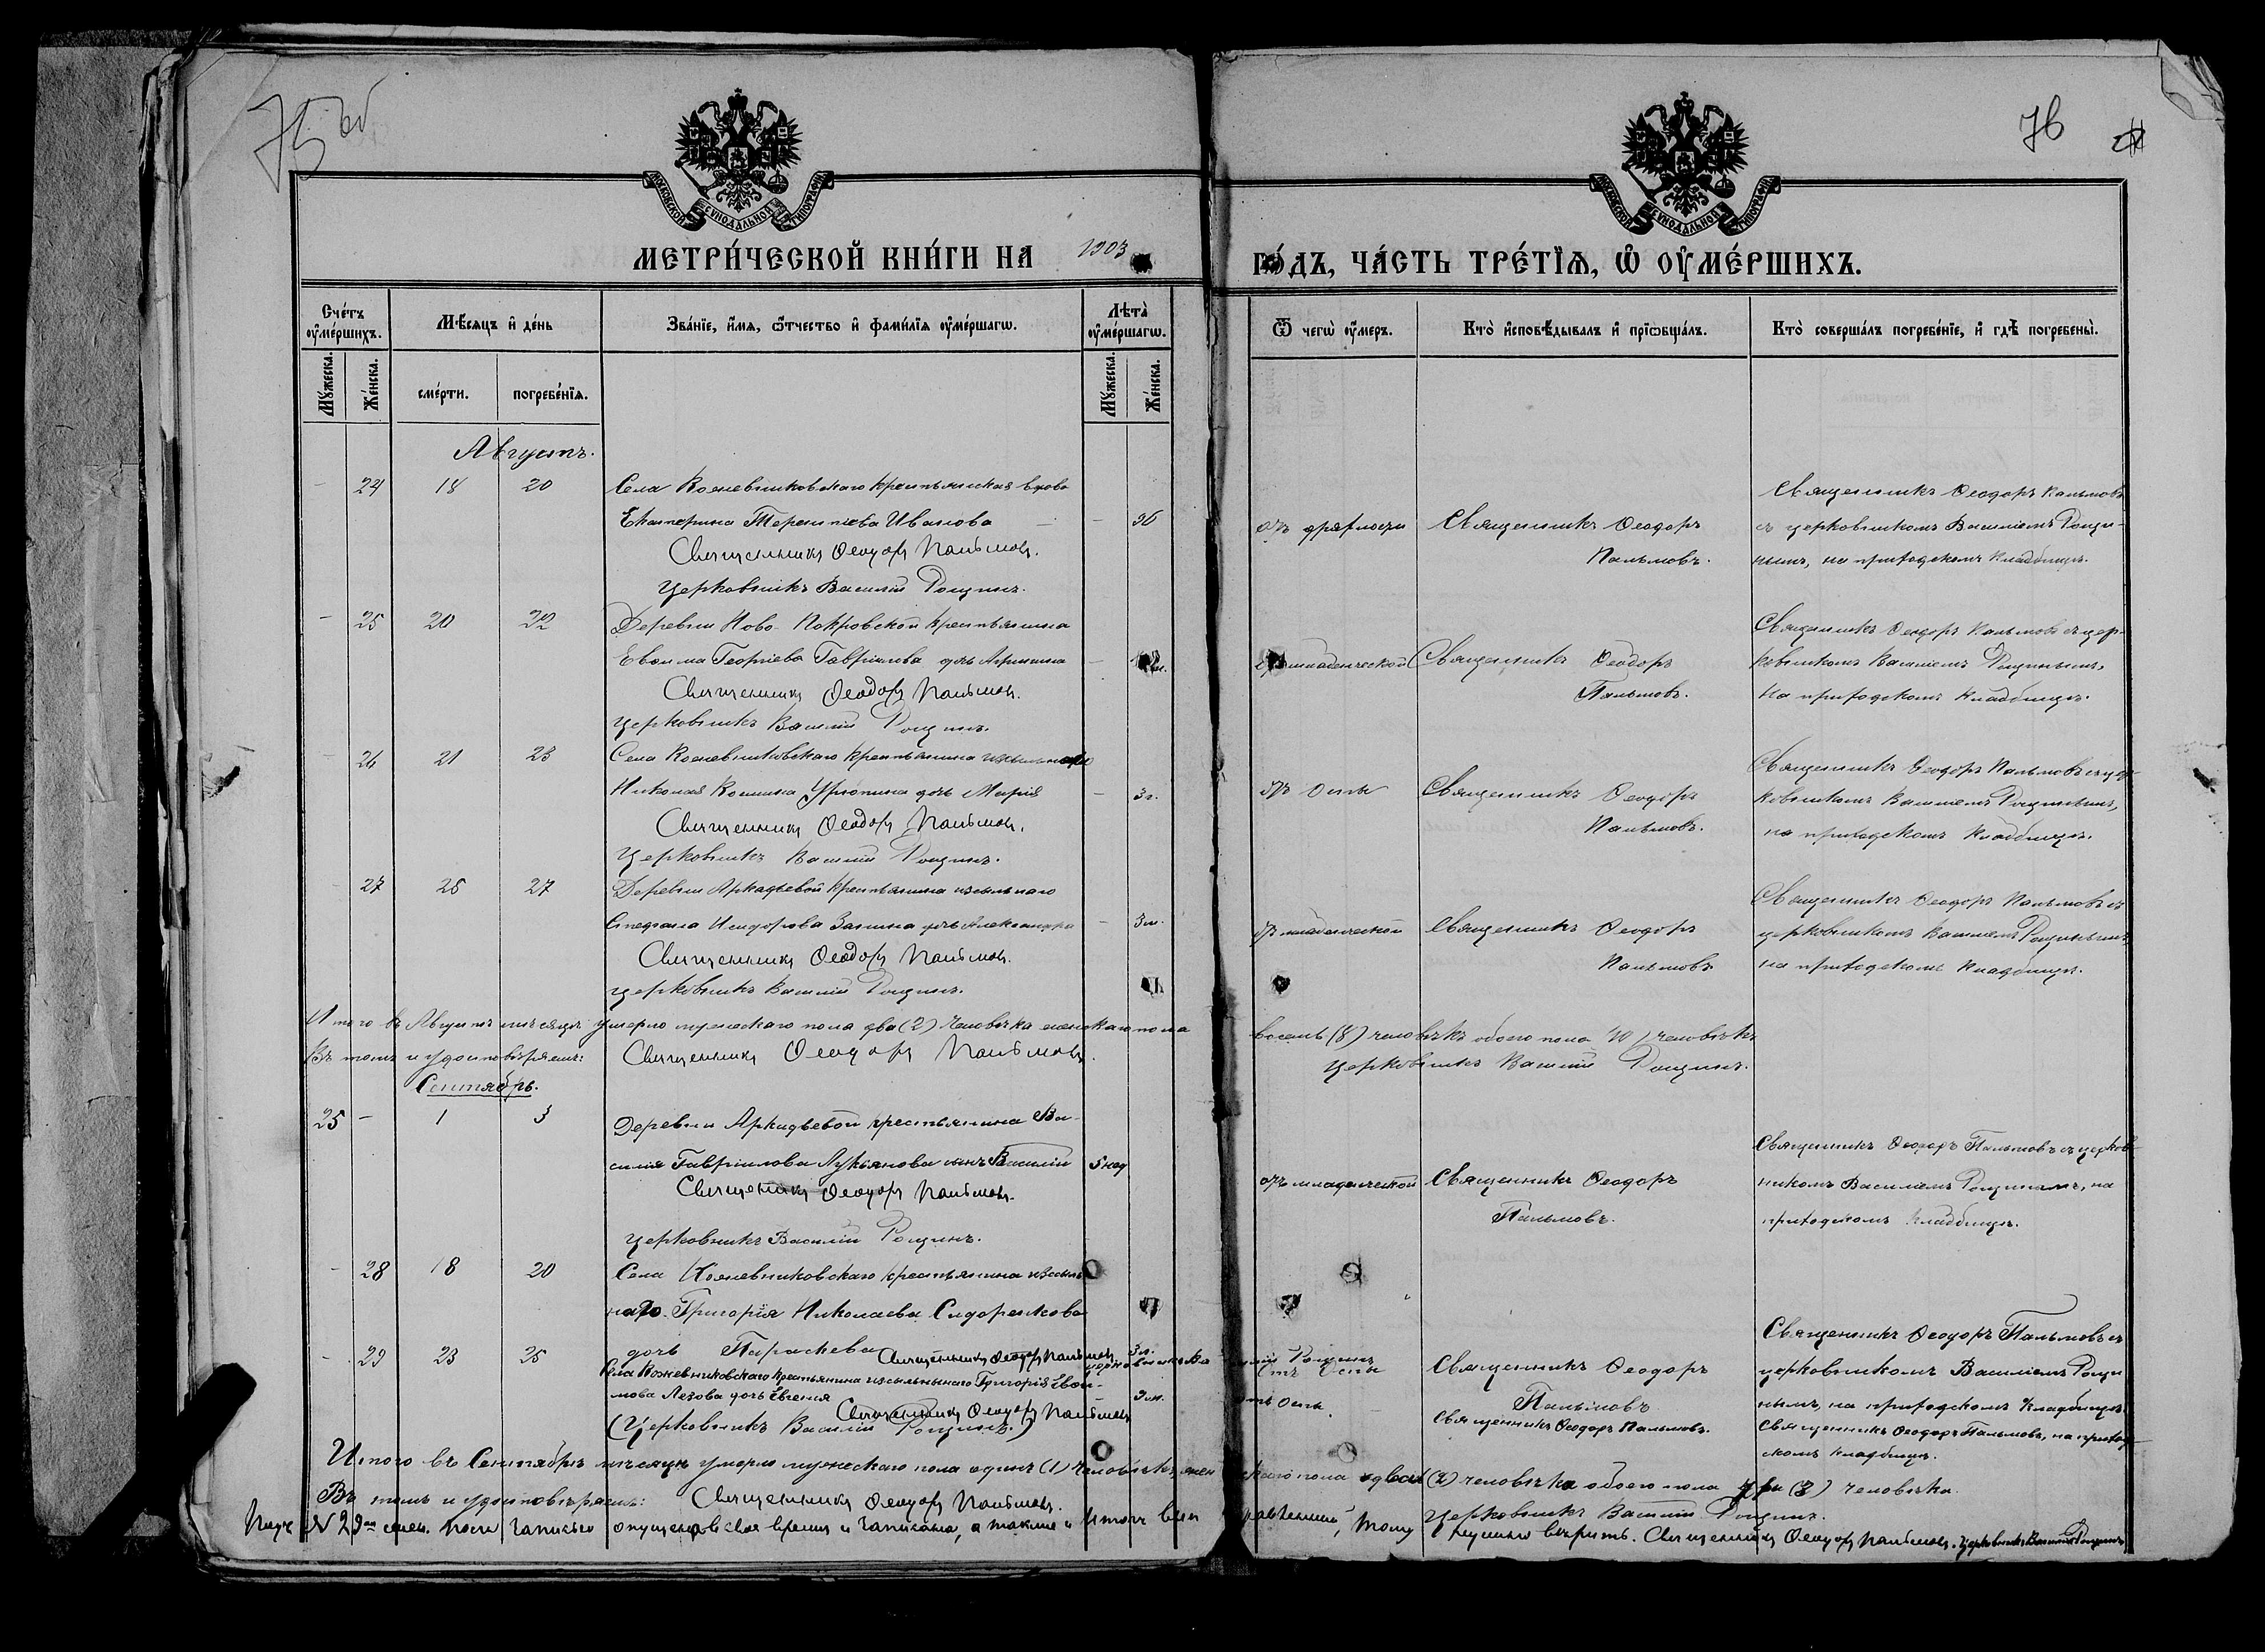 75 об
76
МОСКОВСКОЙ СУНОДАЛЬНОЙ ТИПОГРАФІИ
МОСКОВСКОЙ СУНОДАЛЬНОЙ ТИПОГРАФІИ
МЕТРИ́ЧЕСКОЙ КНИ́ГИ НА 1903
ГО́ДЪ, ЧА́СТЬ ТРЕ́ТІѦ, Ѡ ОУМЕ́РШИХЪ.
Сче́тъ оуме́ршихъ.
Мꙋ́жеска.
Же́нска.
Мѣ́сяцъ и де́нь
сме́рти.
погребе́нїѧ.
Зва́нїе, и́мѧ, ѻ́тчество и фами́лїѧ оуме́ршагѡ.
Лѣта̀ оуме́ршагѡ.
Мꙋ́жеска.
Же́нска.
Ѿ чегѡ̀ оу́меръ.
Кто̀ исповѣ́дывалъ и прїѡбща́лъ.
Кто̀ соверша́лъ погребе́нїе, и гдѣ̀ погребены̀.
Августъ.
- 24 18 20 Села Кожевниковскаго крестьянская вдова
Екатерина Терентіева Иванова - 96
Священникъ Ѳеодоръ Пальмовъ.
Церковникъ Василій Рощинъ.
отъ дряхлости
Священникъ Ѳеодоръ
Пальмовъ.
Священникъ Ѳеодоръ Пальмовъ
съ церковникомъ Василіемъ Рощи-
нымъ, на приходскомъ кладбищѣ.
- 25 20 22 Деревни Ново-Покровской крестьянина
Георгіева Гавріилова дочь
Священникъ Ѳеодоръ Пальмовъ.
Церковникъ Василій Рощинъ.
младенческой
Священникъ Ѳеодоръ
Пальмовъ.
Священникъ Ѳеодоръ Пальмовъ съ цер-
ковникомъ Василіемъ Рощинымъ,
на приходскомъ кладбищѣ.
- 26 21 23 Села Кожевниковскаго крестьянина изсыльнаго
Николая дочь Марія - 3 г.
Священникъ Ѳеодоръ Пальмовъ.
Церковникъ Василій Рощинъ.
отъ Оспы
Священникъ Ѳеодоръ
Пальмовъ.
Священникъ Ѳеодоръ Пальмовъ съ цер-
ковникомъ Василіемъ Рощинымъ,
на приходскомъ кладбищѣ.
- 27 25 27 Деревни Аркадьевой крестьянина изсыльнаго
Стефана Исидорова дочь Александра - 3 м.
Священникъ Ѳеодоръ Пальмовъ.
Церковникъ Василій Рощинъ.
отъ младенческой
Священникъ Ѳеодоръ
Пальмовъ
Священникъ Ѳеодоръ Пальмовъ съ
церковникомъ Василіемъ Рощинымъ
на приходскомъ кладбищѣ.
Итого въ Августѣ мѣсяцѣ умерло мужескаго пола два (2) человѣка женскаго пола восемь (8) человѣкъ обоего пола 10) человѣкъ
Въ томъ и удостовѣряемъ: Священникъ Ѳеодоръ Пальмовъ. Церковникъ Василій Рощинъ.
Сентябрь.
25 - 1 3 Деревни Аркадьевой крестьянина Ва-
силія Гавріилова Лукьянова сынъ Василій 5 нед
Священникъ Ѳеодоръ Пальмовъ.
Церковникъ Василій Рощинъ.
отъ младенческой
Священникъ Ѳеодоръ
Пальмовъ.
Священникъ Ѳеодоръ Пальмовъ съ церков-
никомъ Василіемъ Рощинымъ, на
приходскомъ кладбищѣ.
- 28 18 20 Села Кожевниковскаго крестьянина изсыль
наго Григорія Николаева Сидоренкова
дочь Параскева Священникъ Ѳеодоръ Пальмовъ церковникъ Василій Рощинъ
отъ Оспы
Священникъ Ѳеодоръ
Пальмовъ
Священникъ Ѳеодоръ Пальмовъ съ
церковникомъ Василіемъ Рощи
нымъ, на приходскомъ кладбищѣ.
- 29 23 25 Села Кожевниковскаго крестьянина изсыльнаго Григорія
Лезова дочь Евгенія 9 м.
Священникъ Ѳеодоръ Пальмовъ
(Церковникъ Василій Рощинъ.)
отъ Оспы.
Священникъ Ѳеодоръ Пальмовъ.
Священникъ Ѳеодоръ Пальмовъ, на приход-
скомъ кладбищѣ.
Итого въ Сентябрѣ мѣсяцѣ умерло мужескаго пола одинъ (1) человѣкъ женскаго пола двѣ (2) человѣка обоего пола три (3) человѣка.
Въ томъ и удостовѣряемъ: Священникъ Ѳеодоръ Пальмовъ. Церковникъ Василій Рощинъ.
№ 29 опущена въ свое время и записана, а также и итогъ тому нужно вѣрить. Священникъ Ѳеодоръ Пальмовъ. Церковникъ Василій Рощинъ